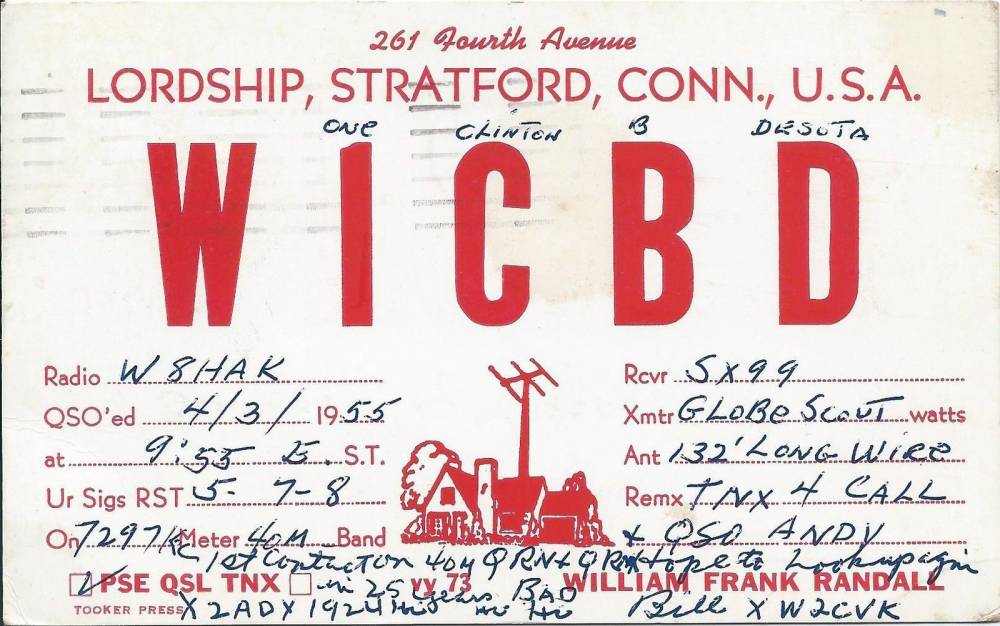 261 Fourth Avenue
LORDSHIP, STRATFORD, CONN., U.S.A.
ONE CLINTON B DESOTA
W1CBD
Radio W8HAK
QSO'ed 4/3/ 1955
at 9:55 E. S.T.
Ur Sigs RST 5- 7-8
On 7297KC Meter 40M Band
Rcvr SX99
Xmtr GLOBE SCOUT watts
Ant 132' LONG WIRE
Remx TNX 4 CALL
& QSO ANDY
1st Contact on 40M QRN & QRM Hope to Lookup again
PSE QSL TNX in 25 years BAD vy 73 WILLIAM FRANK RANDALL
TOOKER PRESS X 2ADX 1924 Hi Bill X W2CVK